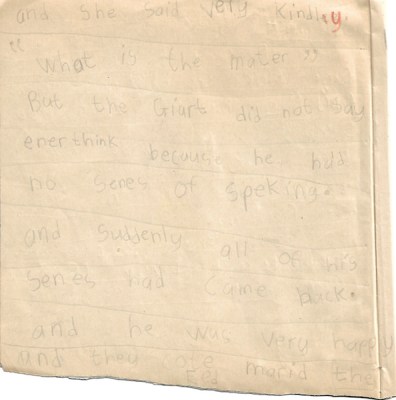 and she said very Kindley
"What is the mater"
But the Giart did not say
enerthink because he had
no senes of speking.
and suddenly all of his
Senes had came back.
and he was very happy
and thay marid the